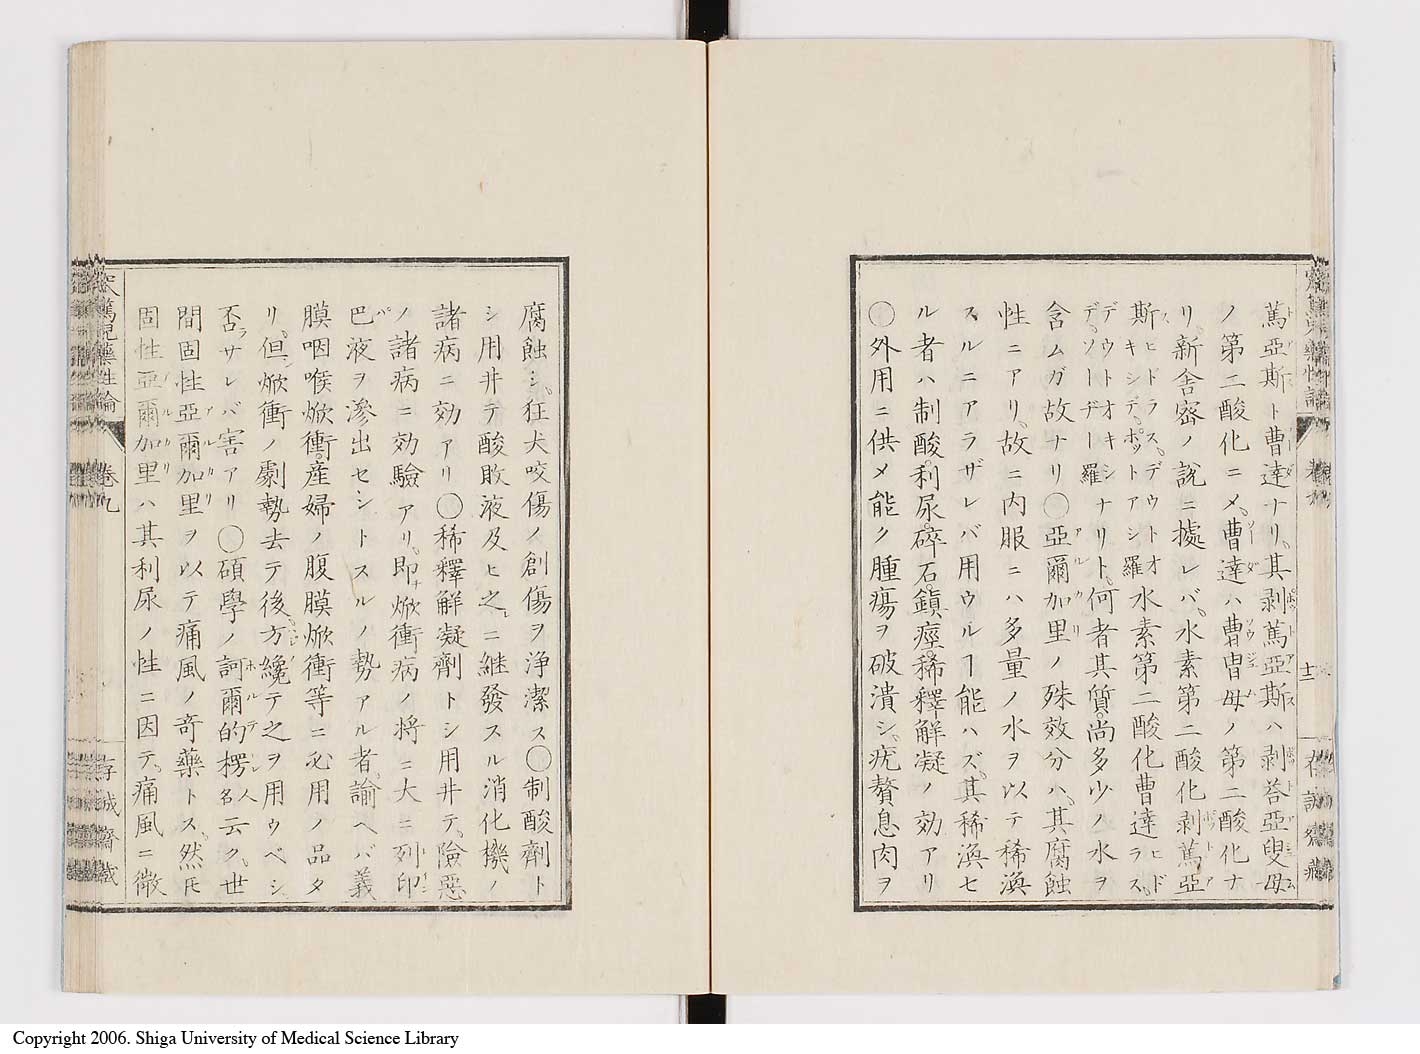 篤亞斯ト曹達ナリ。其剥篤亞斯ハ剥荅亞叟母
ノ第二酸化ニメ。曹達ハ曹胄母ノ第二酸化ナ
リ。新舎密ノ説ニ據レバ。水素第二酸化剥篤亞
斯ヒドラス。デウトオキシデ。ポットアシ羅水素第二酸化曹達ヒドラス。
デウトオキシデ。ソートヂー羅ナリト。何者其質。尚多少ノ水ヲ
含ムガ故ナリ〇亞爾加里ノ殊效分ハ。其腐蝕
性ニアリ。故ニ内服ニハ多量ノ水ヲ以テ稀渙
スルニアラザレバ用ウルヿ能ハズ。其稀渙セ
ル者ハ制酸。利尿。碎石。鎮痙。稀釋解凝ノ効アリ
〇外用ニ供メ能ク腫瘍ヲ破潰シ。疣贅息肉ヲ
十二
腐蝕シ。狂犬咬傷ノ創傷ヲ浄潔ス〇制酸劑ト
シ用井テ酸敗液及ヒ之ニ継發スル消化機ノ
諸病ニ効アリ〇稀釋解凝劑トシ用井テ。險惡
ノ諸病ニ効驗アリ。即焮衝病ノ将ニ大ニ列印
巴液ヲ滲出セシトスルノ勢アル者。諭ヘバ義
膜咽喉焮衝。産婦ノ腹膜焮衝等ニ必用ノ品タ
リ。但焮衝ノ劇勢去テ後。方纔テ之ヲ用ウベシ
否サレバ害アリ〇碩學ノ訶爾的楞人名云ク。世
間固性亞爾加里ヲ以テ痛風ノ奇藥トス。然𪜈
固性亞爾加里ハ其利尿ノ性ニ因テ。痛風ニ徴
藥性論
卷九
存誠齋藏
Copyright 2006. Shiga University of Medical Science Library